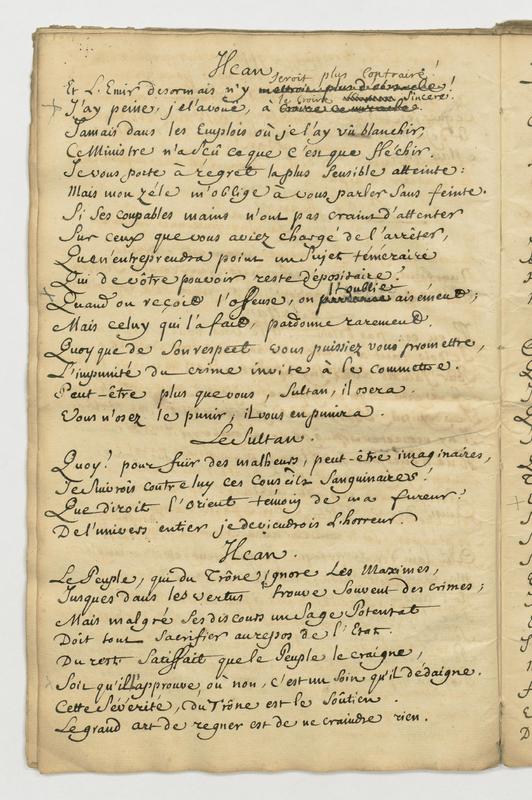 Hcan
seroit plus contraire!
Et L'Emir desormais n'y mettroit plus d'obstacle!
le croire sincere.
J'ay peine, je l'avoüe, à croire ce miracle.
Jamais dans les Emplois où je l'ay vû blanchir,
Ce Ministre n'a sçû ce que c'est que fléchir.
Je vous porte à regret la plus sensible atteinte:
Mais mon zéle m'oblige à vous parler sans feinte.
Si ses coupables mains n'ont pas craint d'attenter
Sur ceux que vous aviez chargé de l'arrêter,
Que n'entreprendra point un sujet téméraire
Qui de vôtre pouvoir reste dépositaire?
l'oublie
Quand on reçoid l'offense, on pardonne aisémend;
Mais celuy qui l'a faid, pardonne raremend.
Quoy que de son respect vous puissiez vous promettre,
L'impunité du crime invite à le commettre.
Peut-être plus que vous, Sultan, il osera.
Vous n'osez le punir; il vous en punira.
Le Sultan.
Quoy? pour fuir des malheurs, peut-être imaginaires,
Je suivrois contre luy ces conseils sanguinaires?
Que diroit l'orient témoin de ma fureur?
De l'univers entier je deviendrois L'horreur.
Hcan.
Le Peuple, qui du Trône ignore Les Maximes,
Jusques dans les vertus trouve souvent des crimes;
Mais malgré ses discours un sage Potentat
Doit tout sacrifier au repos de l'Etat.
Du reste satisfait que le Peuple le craigne,
Soit qu'il l'approuve, où non, c'est un soin qu'il dédaigne.
Cette sévérité, du Trône est le soûtien.
Le grand art de regner est de ne craindre rien.